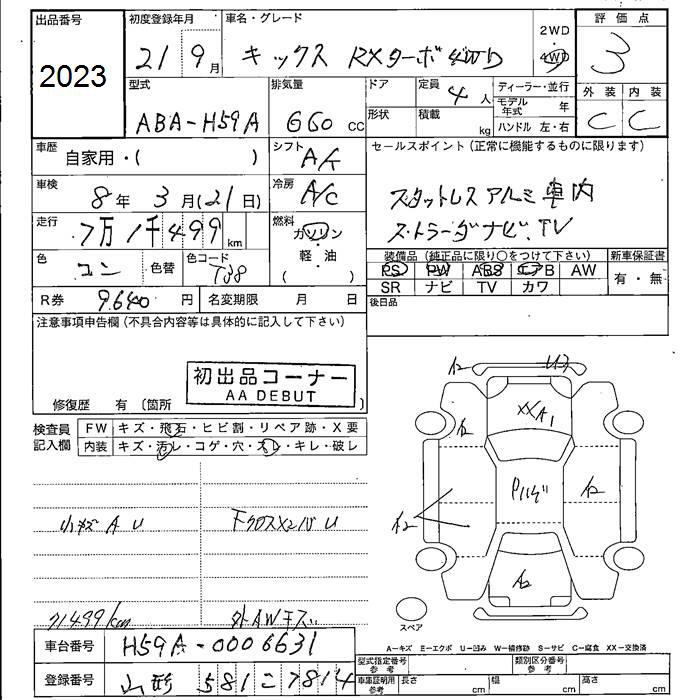 出品番号 初度登録年月 車名・グレード 2WD 4WD 評価点
2023 21 9月 キックス RXターボ 4WD 3
型式 排気量 ドア 定員 4人 ディーラー・並行 外装 内装
モデル年式 年
ABA-H59A 660 CC 形状 積載 kg ハンドル 左・右 C C
車歴 自家用・( ) シフト A/ セールスポイント(正常に機能するものに限ります)
車検 8年 3月(21日) 冷房 A/C スタットレス アルミ 車内
走行 7万1千499km 燃料 ガソリン ストラーダナビ、TV
軽・油
( )
色 コン 色替 色コード T38 装備品(純正品に限り○をつけて下さい) 新車保証書
PS PW ABS エアB AW 有・無
R券 9.640円 名変期限 月 日 SR ナビ TV カワ
注意事項申告欄(不具合内容等は具体的に記入して下さい) 後日品
初出品コーナー
AA DEBUT
修復歴 有(箇所 )
検査員記入欄 FW キズ・飛石・ヒビ割・リペア跡・X要
内装 キズ・汚レ・コゲ・穴・スレ・キレ・破レ
A2 U3
XXA1
A2
A2
A2
A2
小キズ A U
71499km 外AWキズ
スペア
A-キズ E-エクボ U-凹み W-補修跡 S-サビ C-腐食 XX-交換済
車台番号 H59A-0006631
型式指定番号 参考 類別区分番号 参考
登録番号 山形 581 こ 7814
車庫証明用 参考 長さ cm 幅 cm 高さ cm